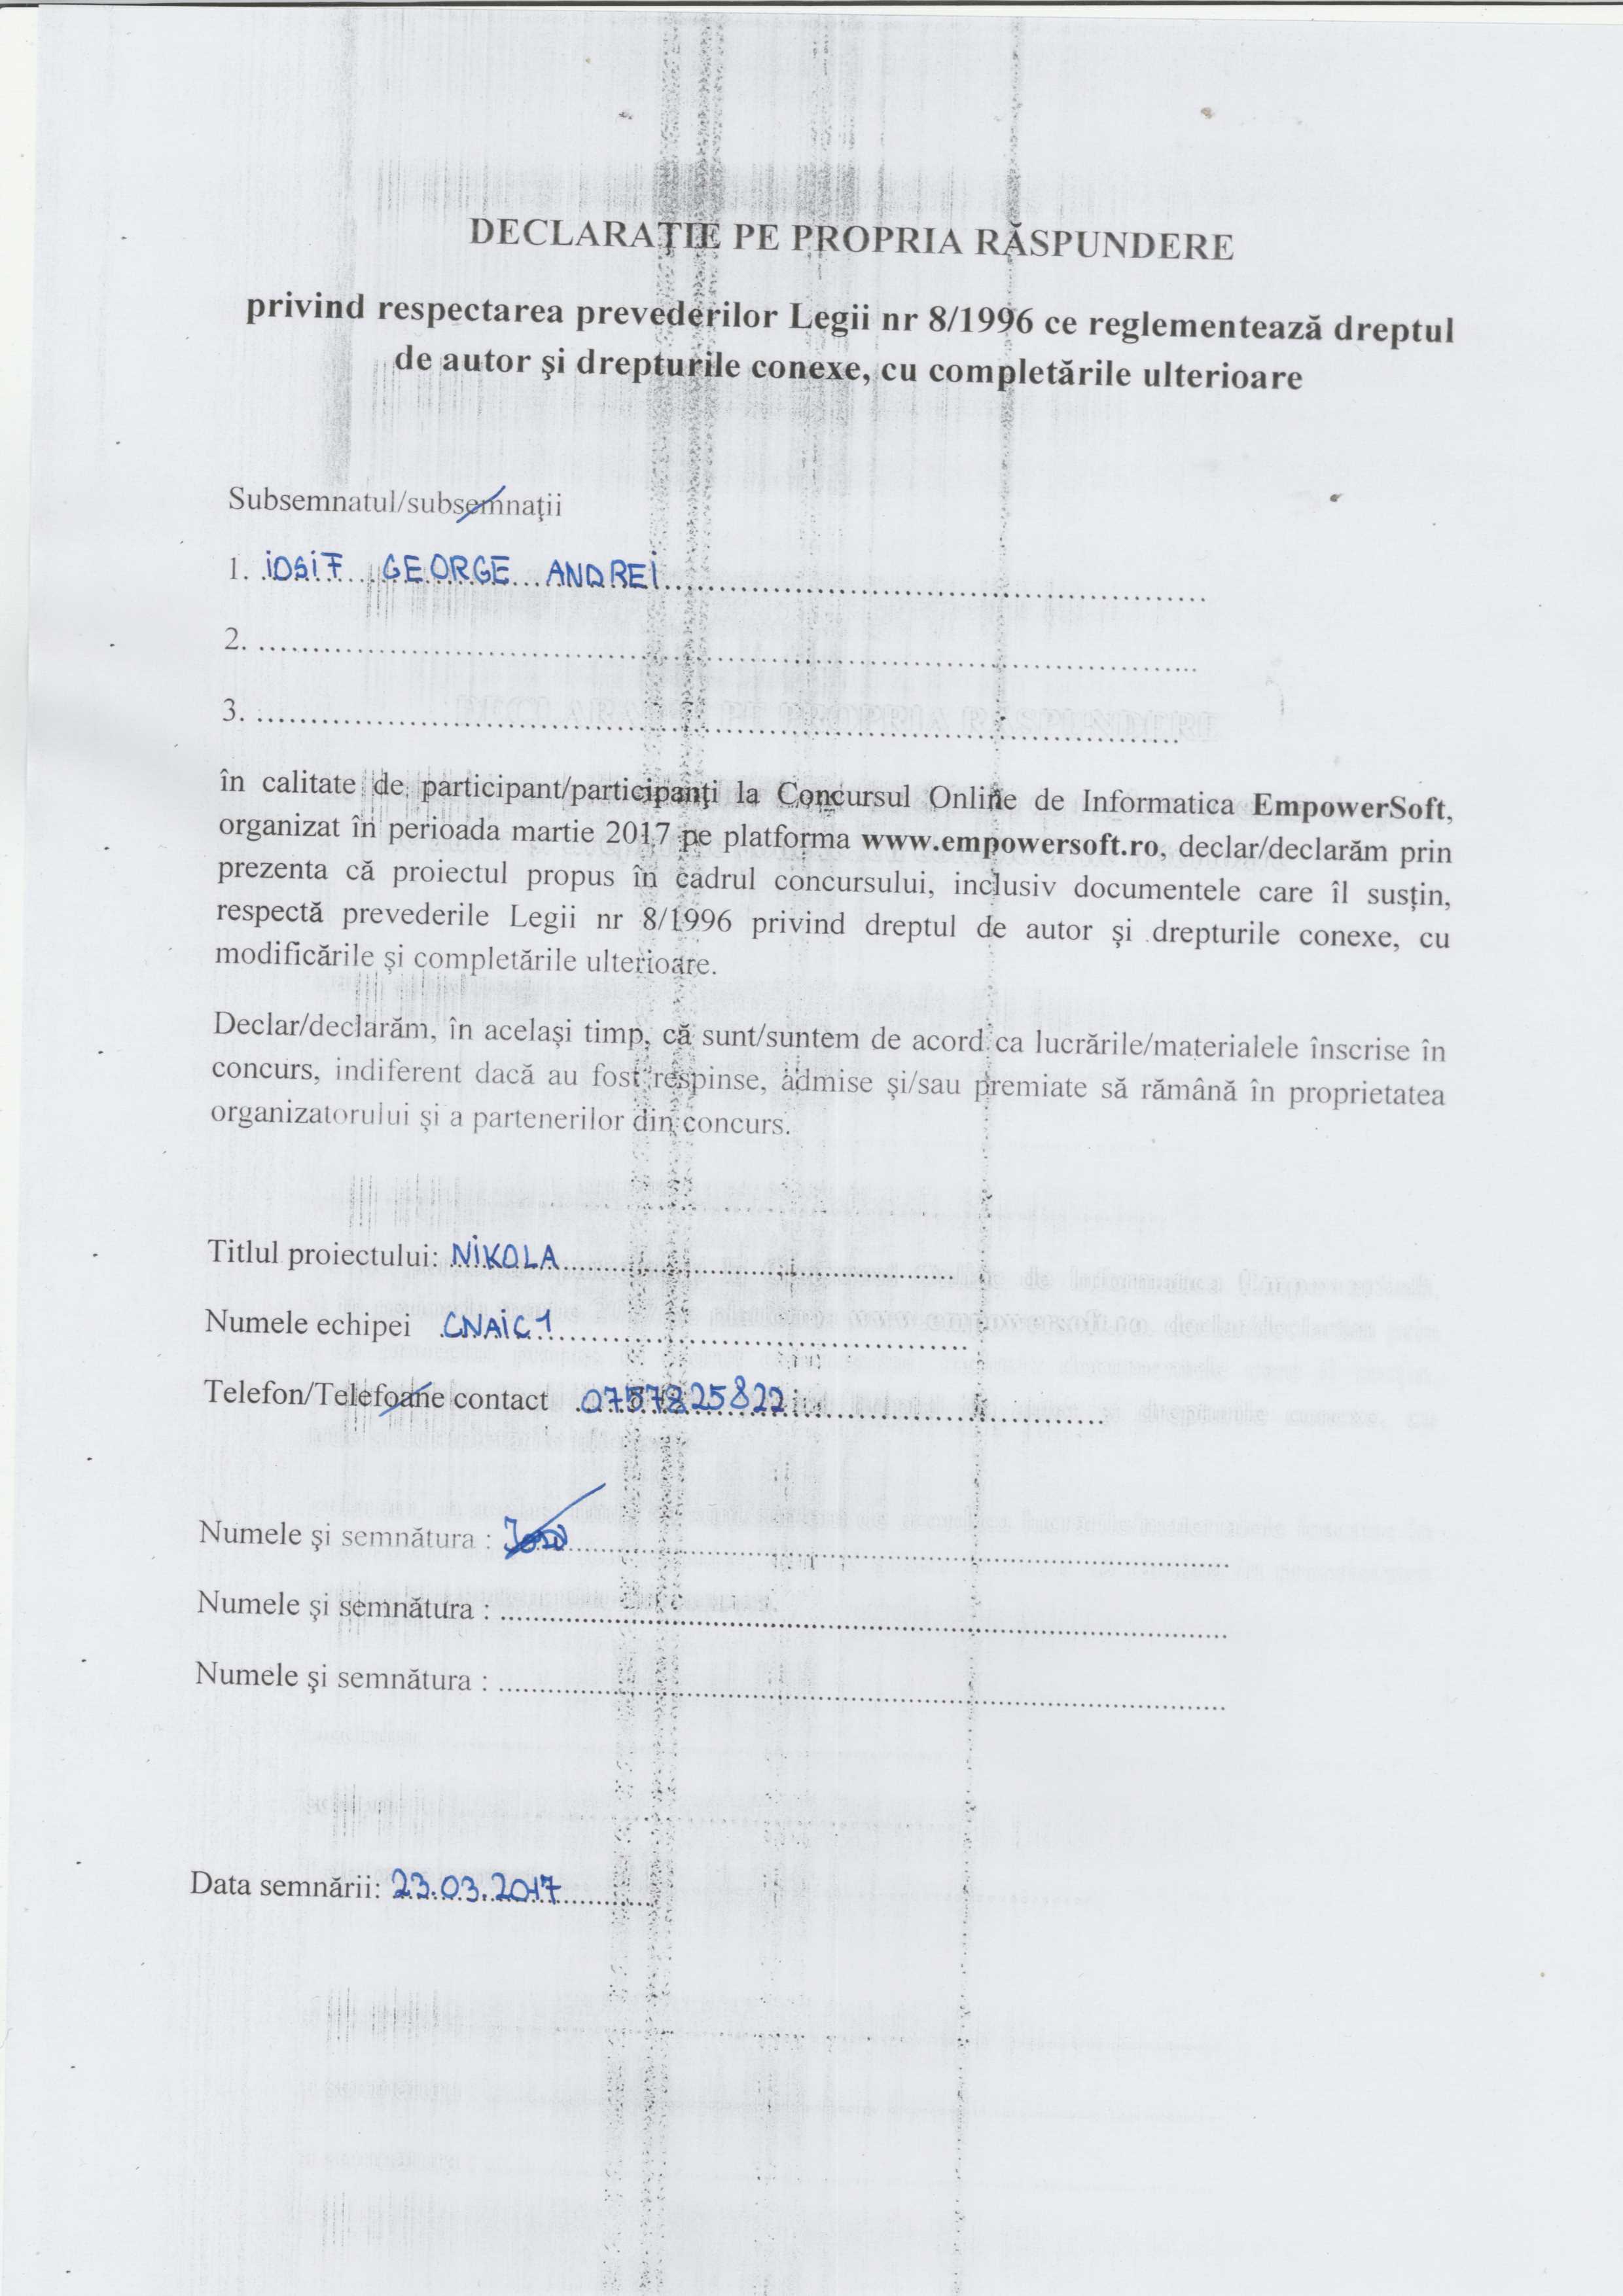 DECLARAŢIE PE PROPRIA RĂSPUNDERE
privind respectarea prevederilor Legii nr 8/1996 ce reglementează dreptul
de autor şi drepturile conexe, cu completările ulterioare
Subsemnatul/subsemnaţii
1. IOSIF GEORGE ANDREI
2.
3.
în calitate de participant/participanţi la Concursul Online de Informatica EmpowerSoft,
organizat în perioada martie 2017 pe platforma www.empowersoft.ro, declar/declarăm prin
prezenta că proiectul propus în cadrul concursului, inclusiv documentele care îl susţin,
respectă prevederile Legii nr 8/1996 privind dreptul de autor şi drepturile conexe, cu
modificările şi completările ulterioare.
Declar/declarăm, în acelaşi timp, că sunt/suntem de acord ca lucrările/materialele înscrise în
concurs, indiferent dacă au fost respinse, admise şi/sau premiate să rămână în proprietatea
organizatorului şi a partenerilor din concurs.
Titlul proiectului: NIKOLA
Numele echipei CNAIC1
Telefon/Telefoane contact 0757825822
Numele şi semnătura :
Numele şi semnătura :
Numele şi semnătura :
Data semnării: 23.03.2017